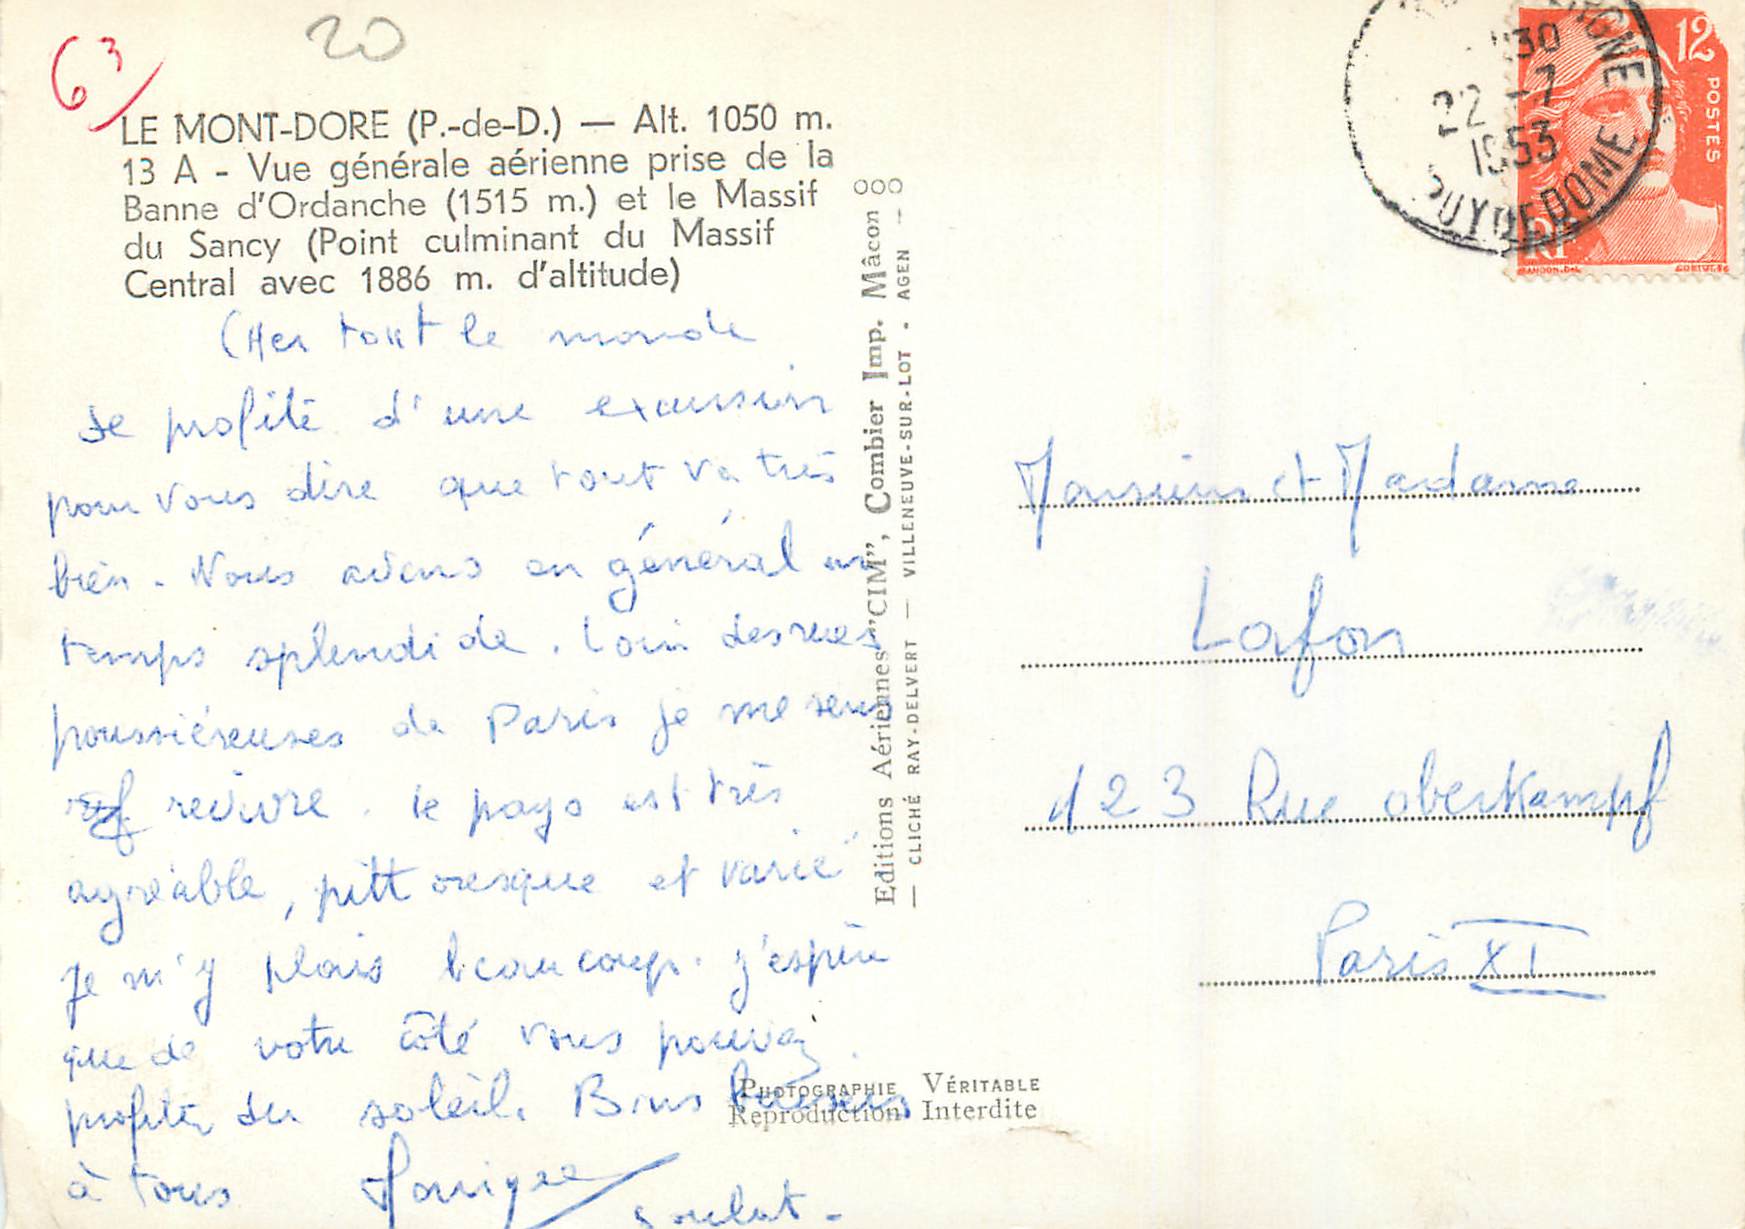 63
20
LE MONT-DORE (P.-de-D.) — Alt. 1050 m.
13 A - Vue générale aérienne prise de la
Banne d'Ordanche (1515 m.) et le Massif
du Sancy (Point culminant du Massif
Central avec 1886 m. d'altitude)
Cher tout le monde
Je profite d'une excursion
pour vous dire que tout va très
bien. Nous avons en général un
temps splendide. Loin des rues
poussiéreuses de Paris je me sens
revivre. Le pays est très
agréable, pittoresque et varié
Je m'y plais beaucoup. J'espère
que de votre côté vous pouvez
profiter du soleil. Bons baisers
à tous Monique
Editions Aériennes "CIM", Combier Imp. Mâcon
— CLICHÉ RAY-DELVERT — VILLENEUVE-SUR-LOT - AGEN —
PHOTOGRAPHIE VÉRITABLE
Reproduction Interdite
30
22 -7
1953
PUY DE DOME
12
POSTES
RF
GANDON.DEL
Monsieur et Madame
Lafon
123 Rue oberkampf
Paris XI